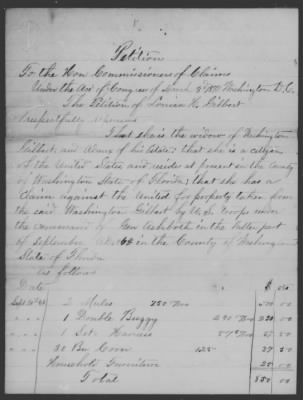 Petition
To the Hon Commissioners of Claims
Under the Act of Congress of March 3d 1871 Washington D.C.
The Petition of Louisa H. Gilbert
Respectfully
That she is the widow of Washington
Gilbert, and of his Estate; that she is a citizen
of the United States and resides at present in the County
of Washington State of Florida; that she has a
Claim against the United for property taken from
the said Washington Gilbert by U.S. troops under
the command of Gen Ashboth in the latter part
of September in the County of Washington
State of Florida
As follows
Date $ cts
2 Mules 250 500 00
1 Double Buggy 230 00
1 Set Harness
30 Bu Corn 125 37 50
Household Furniture 25 00
Total 850 00